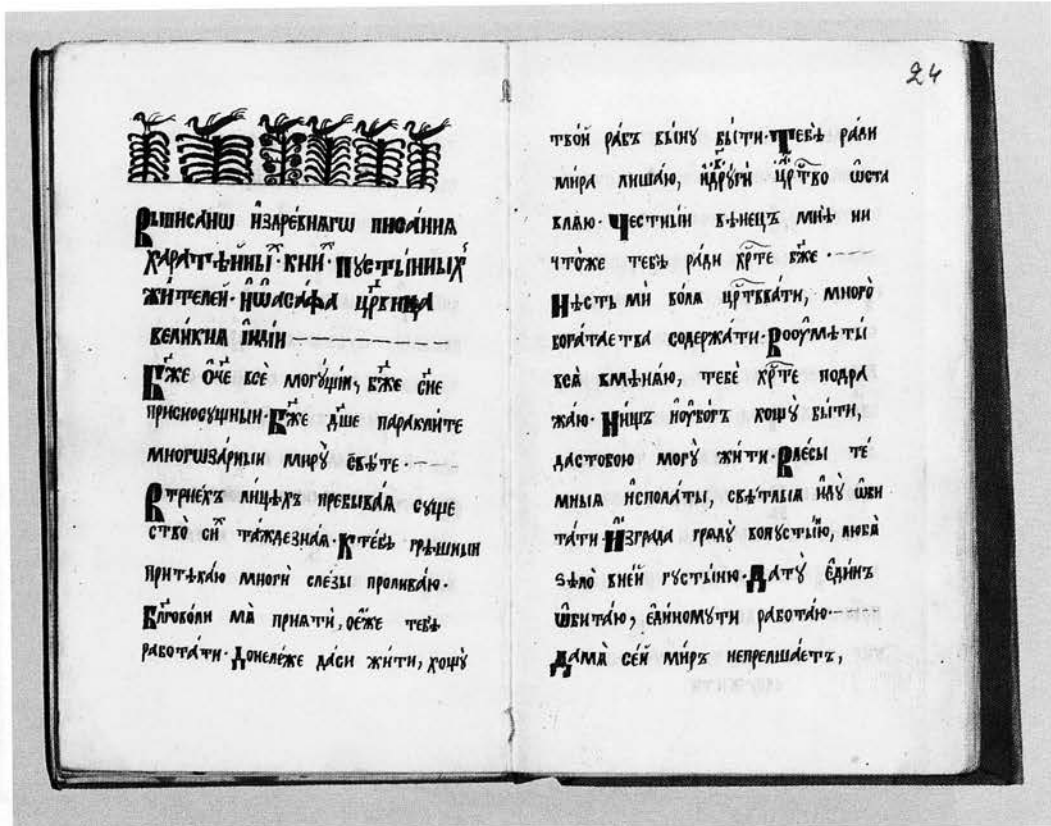 Выписанѡ иꙁдре́внѧгѡ писа́ниꙗ
хара́тѣйны кни пꙋсты́нныхъ
жи́телей· иѡаса́фа црви́ца
вели́киꙗ і҆нді́и
Бж҃е ѻч҃е всѐ могꙋ́щїи, бж҃е сн҃е
присносꙋщныи· Бж҃е дш҃е параклите
многѡза́рныи ми́рꙋ свѣ́те·
Втрїе́хъ ли́цѣхъ пребыва́ꙗ сꙋще
ство̀ си та́ждезна́ꙗ· Ктебѣ̀ грѣ́шныи
притѣка́ю мно́ги сле́ꙁы пролива́ю·
Блг҃овóли мѧ̀ прїѧ́ти, ѻе́же тебѣ̀
рабóтати· донеле́же да́си жи́ти, хощꙋ̀
24
твóй рáбъ вы́нꙋ бы́ти· Тебѣ̀ рáди
ми́ра лишáю, и҆дрꙋ́ги цр҃тво ѡста
влѧ́ю· Че́стныи вѣне́цъ мнѣ̀ ни
чтóже тебѣ̀ рáди хр҃те бж҃е·
Нѣ́сть ми вóлѧ цр҃твовáти, мно́го
богáтаства содержáти· Вооумѣ́ты
всѧ̀ вмѣнѧ́ю, тебѐ хр҃те подра
жáю· Ни́щъ иоубóгъ хощꙋ̀ бы́ти,
дастобóю могꙋ̀ жи́ти· Влѣсы те́
мныѧ и҆сполáты, свѣ́тлыѧ и҆дꙋ̀ ѡби
тáти· И҆згрáда грѧдꙋ̀ вопꙋсты́ню, любѧ̀
ѕѣлò вне́й гꙋсты́ню· Да тꙋ̀ є҆ди́нъ
ѡ҆битáю, є҆ди́номꙋти рабóтаю
Дамѧ̀ се́й ми́ръ непрелщáетъ,